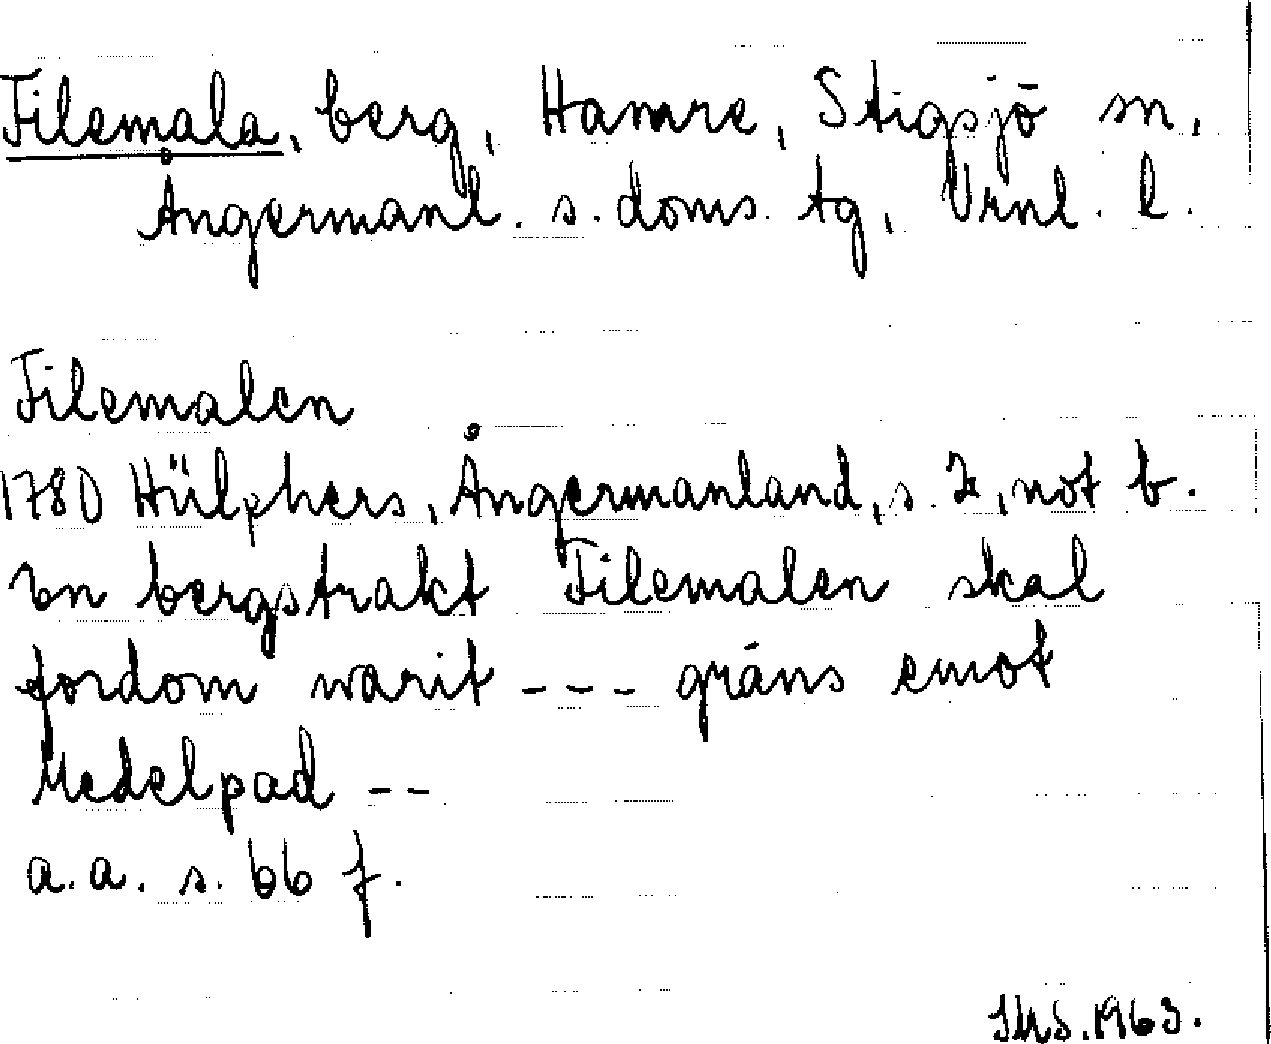 Filemala, berg, Hamre, Stigsjö sn,
Ångermanl. s. doms. tg, Vrnl. l.
Filemalen
1780 Hülphers, Ångermanland, s. 2, not b.
En bergstrakt Filemalen skal
fordom warit --- gräns emot
Medelpad --
a.a. s. 66 f.
1963.